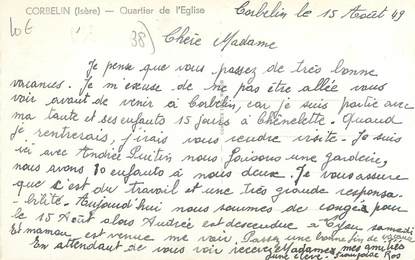 CORBELIN (Isère) — Quartier de l'Eglise
Corbelin le 15 Août 49
38)
Chère Madame
Je pense que vous passez de très bonne
vacances. Je m'excuse de ne pas être allée vous
voir avant de venir à Corbelin, car je suis partie avec
ma tante et ses enfants 15 jours à Chênelette. Quand
je rentrerais, j'irais vous rendre visite. Je suis
ici avec Andrée nous faisons une garderie,
nous avons 70 enfants à nous deux. Je vous assure
que c'est du travail et une très grande responsa-
bilité. Aujourd'hui nous sommes de congés pour
le 15 Août alors Andrée est descendue à Lyon samedi
Et maman est venue me voir. Passez une bonne fin de vacance
En attendant de vous voir recevez Madame mes amitiés
d'une élève. Françoise Ros